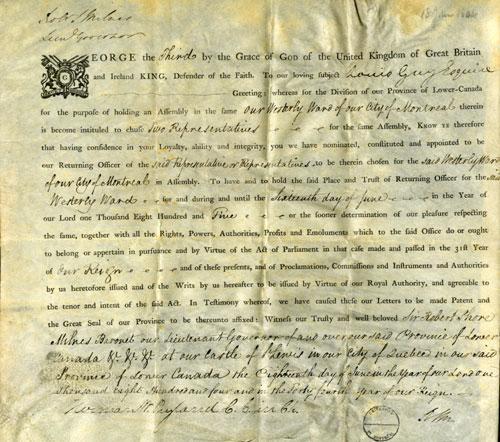 Robt S Milnes
Lieut Governor
GEORGE the Third by the Grace of GOD of the United Kingdom of Great Britain
and Ireland KING, Defender of the Faith. To our loving subject Louis Guy Esquire
Greeting: whereas for the Division of our Province of Lower-Canada
for the purpose of holding an Assembly in the same our Westerly Ward of our City of Montreal therein
is become intituled to chuse two Representatives for the same Assembly, KNOW YE therefore
that having confidence in your Loyalty, ability and integrity, you we have nominated, constituted and appointed to be
our Returning Officer of the said Representative or Representatives to be therein chosen for the said Westerly Ward
of our City of Montreal in Assembly. To have and to hold the said Place and Trust of Returning Officer for the said
Westerly Ward for and during and until the Sixteenth day of June in the Year of
our Lord one Thousand Eight Hundred and Five or the sooner determination of our pleasure respecting
the same, together with all the Rights, Powers, Authorities, Profits and Emoluments which to the said Office do or ought
to belong or appertain in pursuance and by Virtue of the Act of Parliament in that case made and passed in the 31st Year
of Our Reign and of these presents, and of Proclamations, Commissions and Instruments and Authorities
by us heretofore issued and of the Writs by us hereafter to be issued by Virtue of our Royal Authority, and agreeable to
the tenor and intent of the said Act. In Testimony whereof, we have caused these our Letters to be made Patent and
the Great Seal of our Province to be thereunto affixed: Witness our Trusty and well beloved Sir Robert Shore
Milnes Baronet our Lieutenant Governor of and over our said Province of Lower
Canada &c &c &c at our Castle of St Lewis in our City of Quebec in our said
Province of Lower Canada the Eighteenth day of June in the Year of our Lord one
thousand eight hundred and four and in the forty fourth year of our Reign.